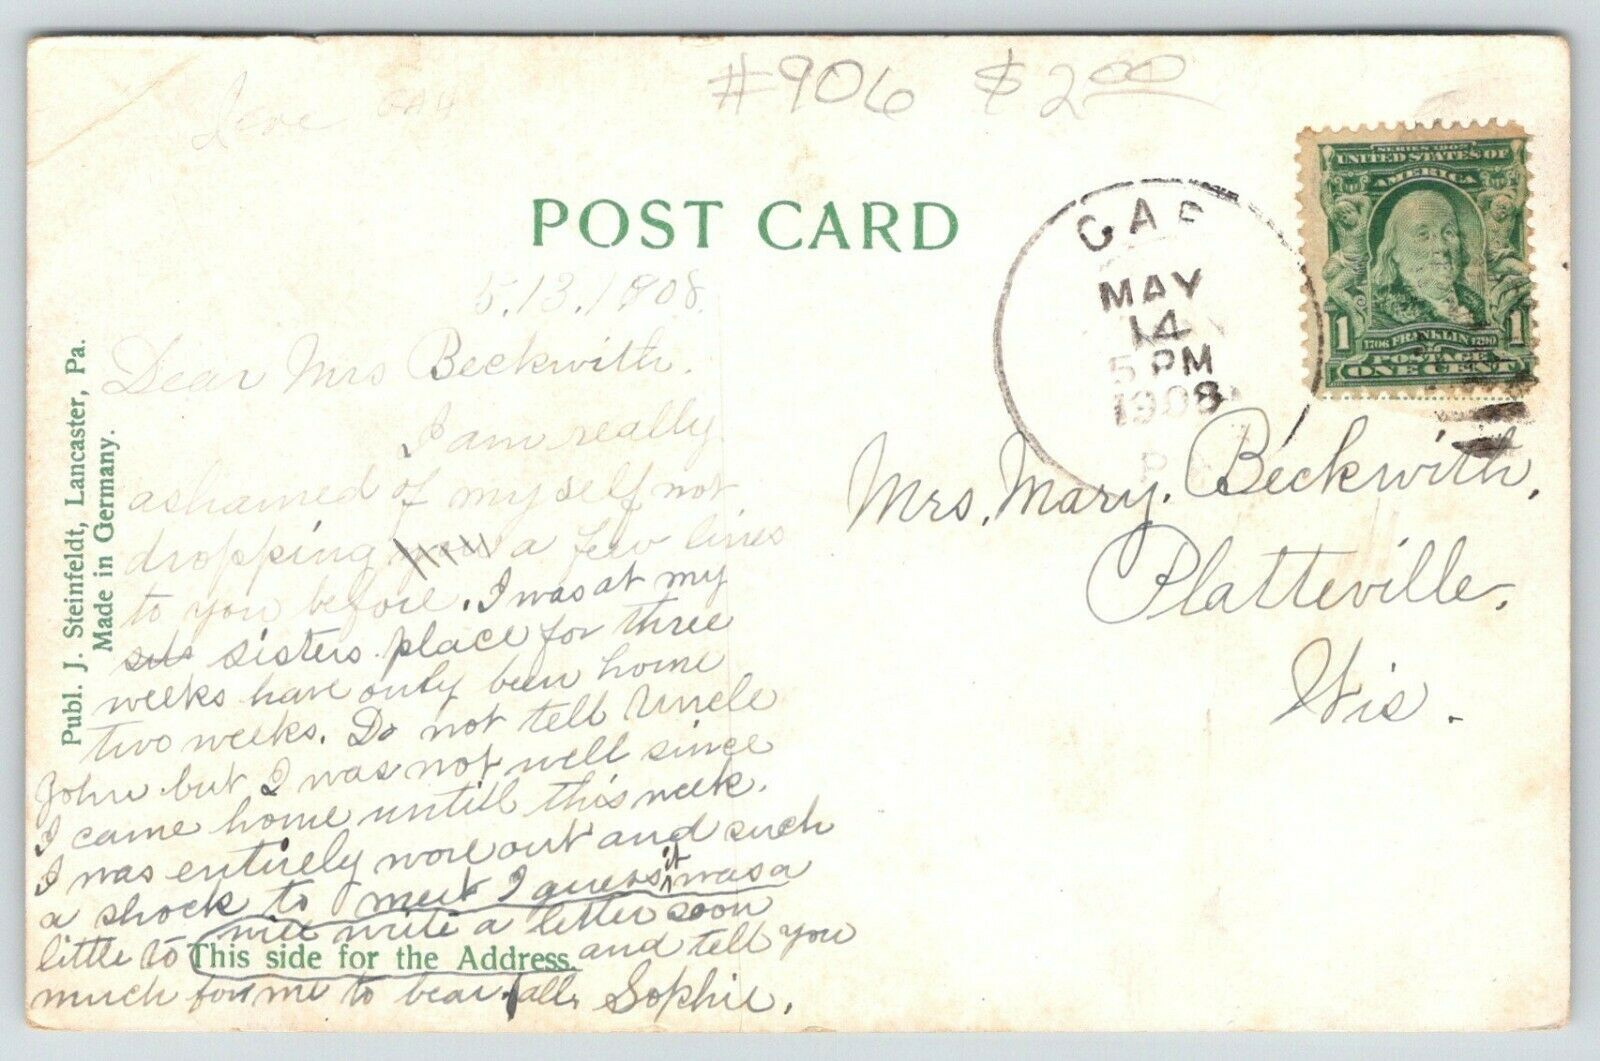 #906 $2.00
POST CARD
SERIES 1902
UNITED STATES OF
AMERICA
1 1706 FRANKLIN 1790 1
POSTAGE
ONE CENT
GAP
MAY
14
5 PM
1908
Publ. J. Steinfeldt, Lancaster, Pa.
Made in Germany.
5.13.1908.
Dear Mrs Beckwith.
I am really
ashamed of myself not
dropping a few lines
to you before. I was at my
sisters place for three
weeks have only been home
two weeks. Do not tell Uncle
John but I was not well since
I came home untill this week.
I was entirely wore out and such
a shock to meet I guess it was a
little to
much for me to bear.
will write a letter soon
and tell you
all, Sophie.
This side for the Address.
Mrs. Mary. Beckwith,
Platteville,
Wis.